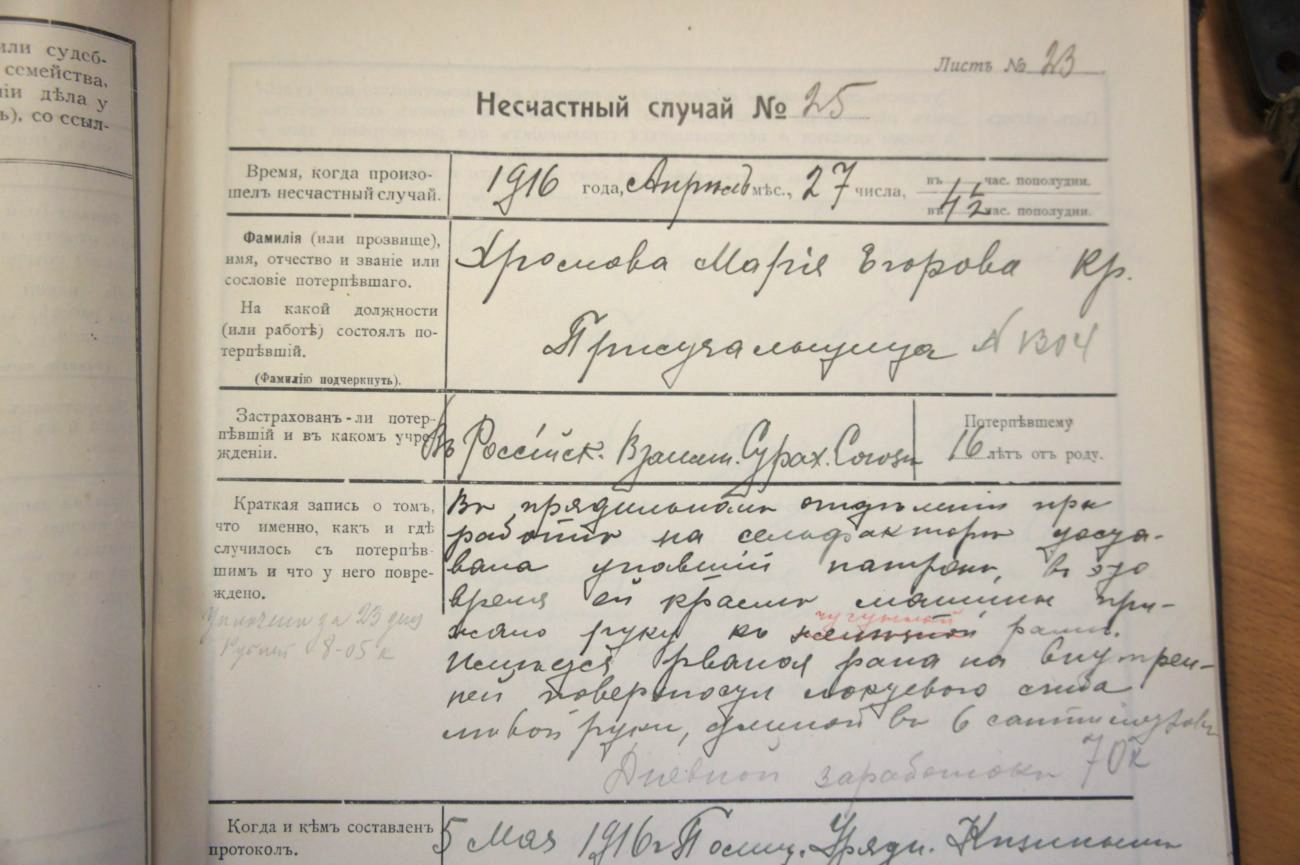 или судеб-
семейства,
ніи дѣла у
ъ), со ссыл-
Листъ № 23
Несчастный случай № 25
Время, когда произо-
шелъ несчастный случай.
1916 года, Апрѣль мѣс., 27 числа,
въ час. пополудни.
въ 4½ час. пополудни.
Фамилія (или прозвище),
имя, отчество и званіе или
сословіе потерпѣвшаго.
На какой должности
(или работѣ) состоялъ по-
терпѣвшій.
(Фамилію подчеркнуть).
Хромова Марія Егорова кр.
Присучальщица № 1304
Застрахованъ-ли потер-
пѣвшій и въ какомъ учре-
жденіи.
Въ Россійск. Взаим. Страх. Союзѣ
Потерпѣвшему
16 лѣтъ отъ роду.
Краткая запись о томъ,
что именно, какъ и гдѣ
случилось съ потерпѣв-
шимъ и что у него повре-
ждено.
Уплочено за 23 дня
Рублей 8-05 к
Въ прядильномъ отдѣленіи при
работѣ на сельфакторѣ доста-
вала упавшій патронъ, въ это
время ей краемъ машины при-
жало руку къ чугунной рамѣ.
Имѣется рваная рана на внутрен-
ней поверхности локтевого сгиба
лѣвой руки, длиной въ 6 сантиметровъ
Дневной заработокъ 70 к
Когда и кѣмъ составленъ
протоколъ.
5 Мая 1916 г. Полиц. Уряди.